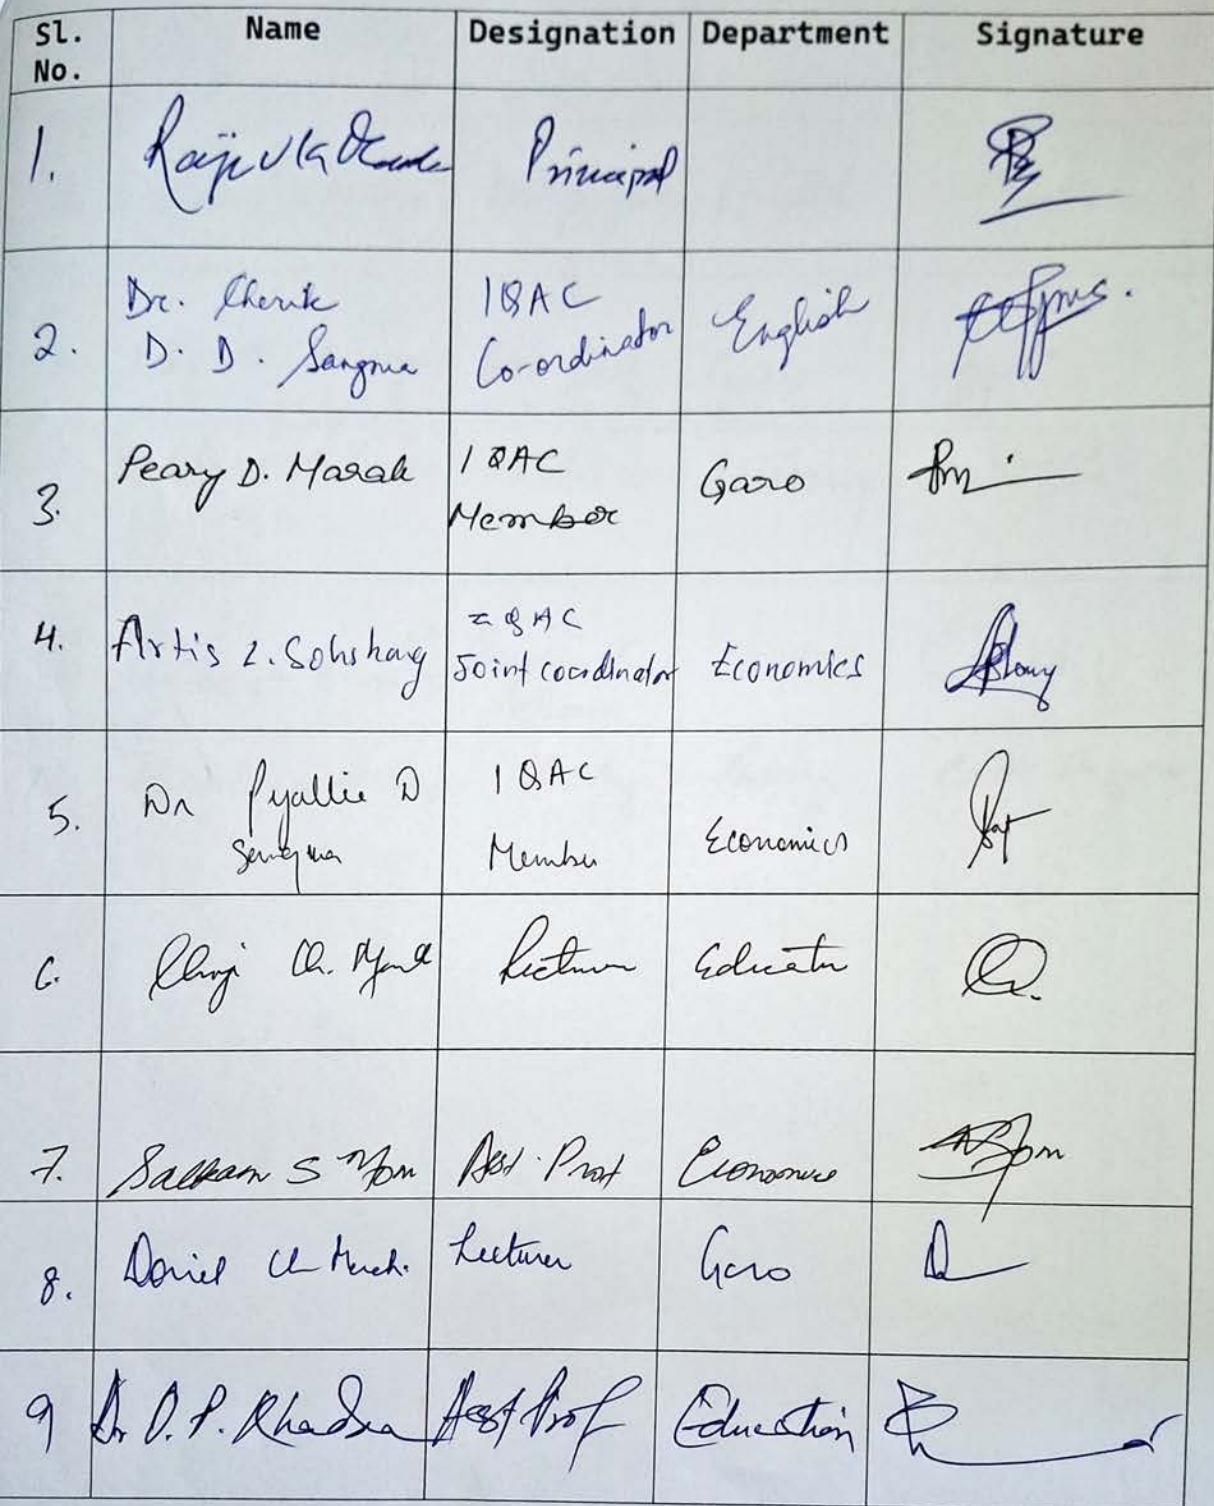 Sl. No. Name Designation Department Signature
1. Principal
2. Dr. Cherik D. D. Sangma IQAC Co-ordinator English
3. Peary D. Marak IQAC Member Garo
4. Artis L. Sohshang IQAC Joint coordinator Economics
5. Dr Pyallie D Sangma IQAC Member Economics
6. Lecturer Education
7. Salkam S Mom Asst. Prof Economics
8. Daniel Ch Marak. Lecturer Garo
9 Dr O. P. Asst Prof Education